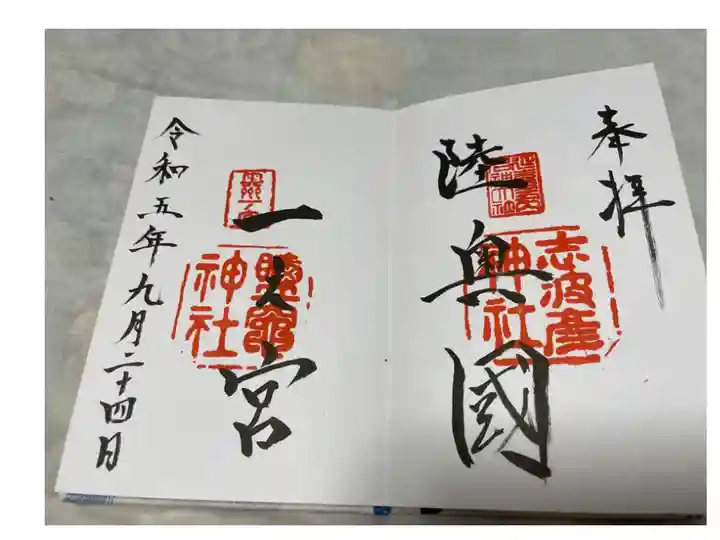 奉拝
陸奥國
志波彦
神社
一之宮
鹽竈
神社
令和五年九月二十四日